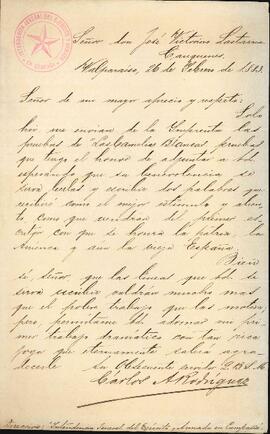 Señor don José Victorino Lastarria
Cauquenes
Valparaiso, 26 de Febrero de 1883.
Señor de mi mayor aprecio y respeto:
Solo
hoi me envian de la Imprenta las
pruebas de Las Camelias Blancas, pruebas
que tengo el honor de adjuntar a Ud.
esperando que su benevolencia se
sirva leerlas y escribir dos palabras que
recibiré como el mejor estímulo y alien-
to como que vendran del primer es-
critor con que se honra la patria, la
América y aún la vieja España.
Bien
sé, Señor, que las líneas que Ud. se
sirva escribir valdrán mucho mas
que el pobre trabajo que las motiva
pero permítame Ud. adornar mi pri-
mer trabajo dramático con tan rica
joya que eternamente sabrá agra-
decerle su Obsecuente servidor Q. B. S. M.
Carlos A. Rodriguez
Direccion: "Intendencia Jeneral del Ejército y Armada en Campaña"